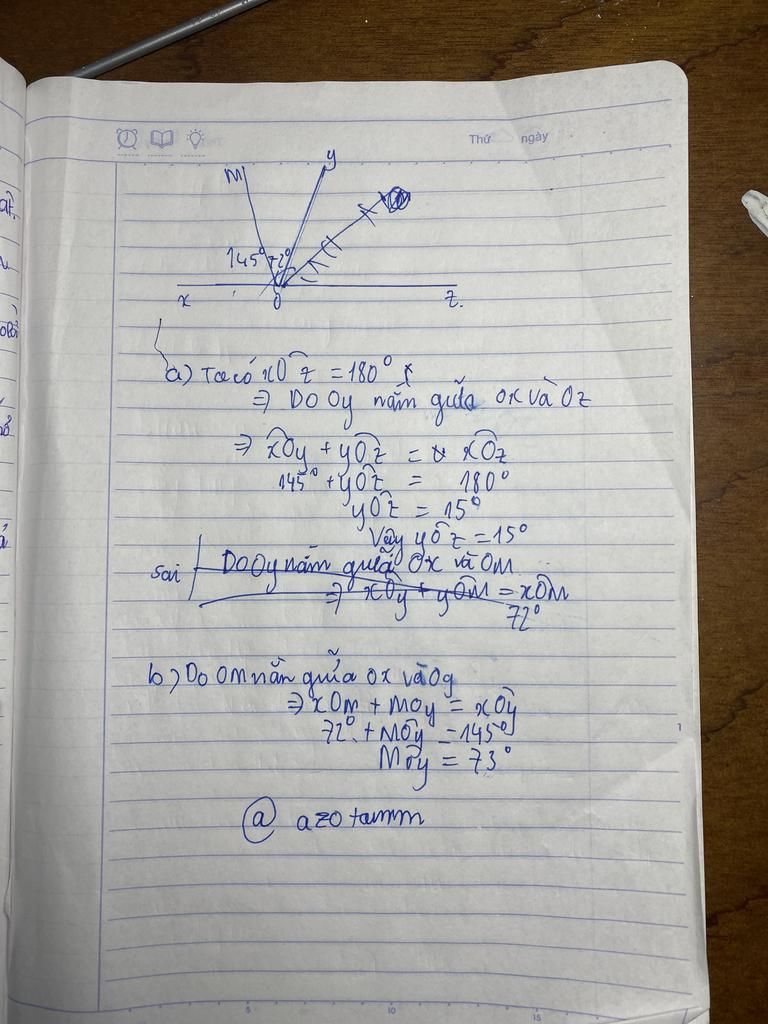 Thứ ngày
M y
145° 72°
x O z
a) Ta có xÔz = 180°
⇒ Do Oy nằm giữa Ox và Oz
⇒ xÔy + yÔz = xÔz
145° + yÔz = 180°
yÔz = 15°
Vậy yÔz = 15°
Sai Do Oy nằm giữa Ox và OM
⇒ xÔy + yÔM = xÔM
72°
b) Do OM nằn giữa Ox và Oy
⇒ xOM + MOy = xÔy
72° + MÔy = 145°
MÔy = 73°
@ azotamm
5 10 15